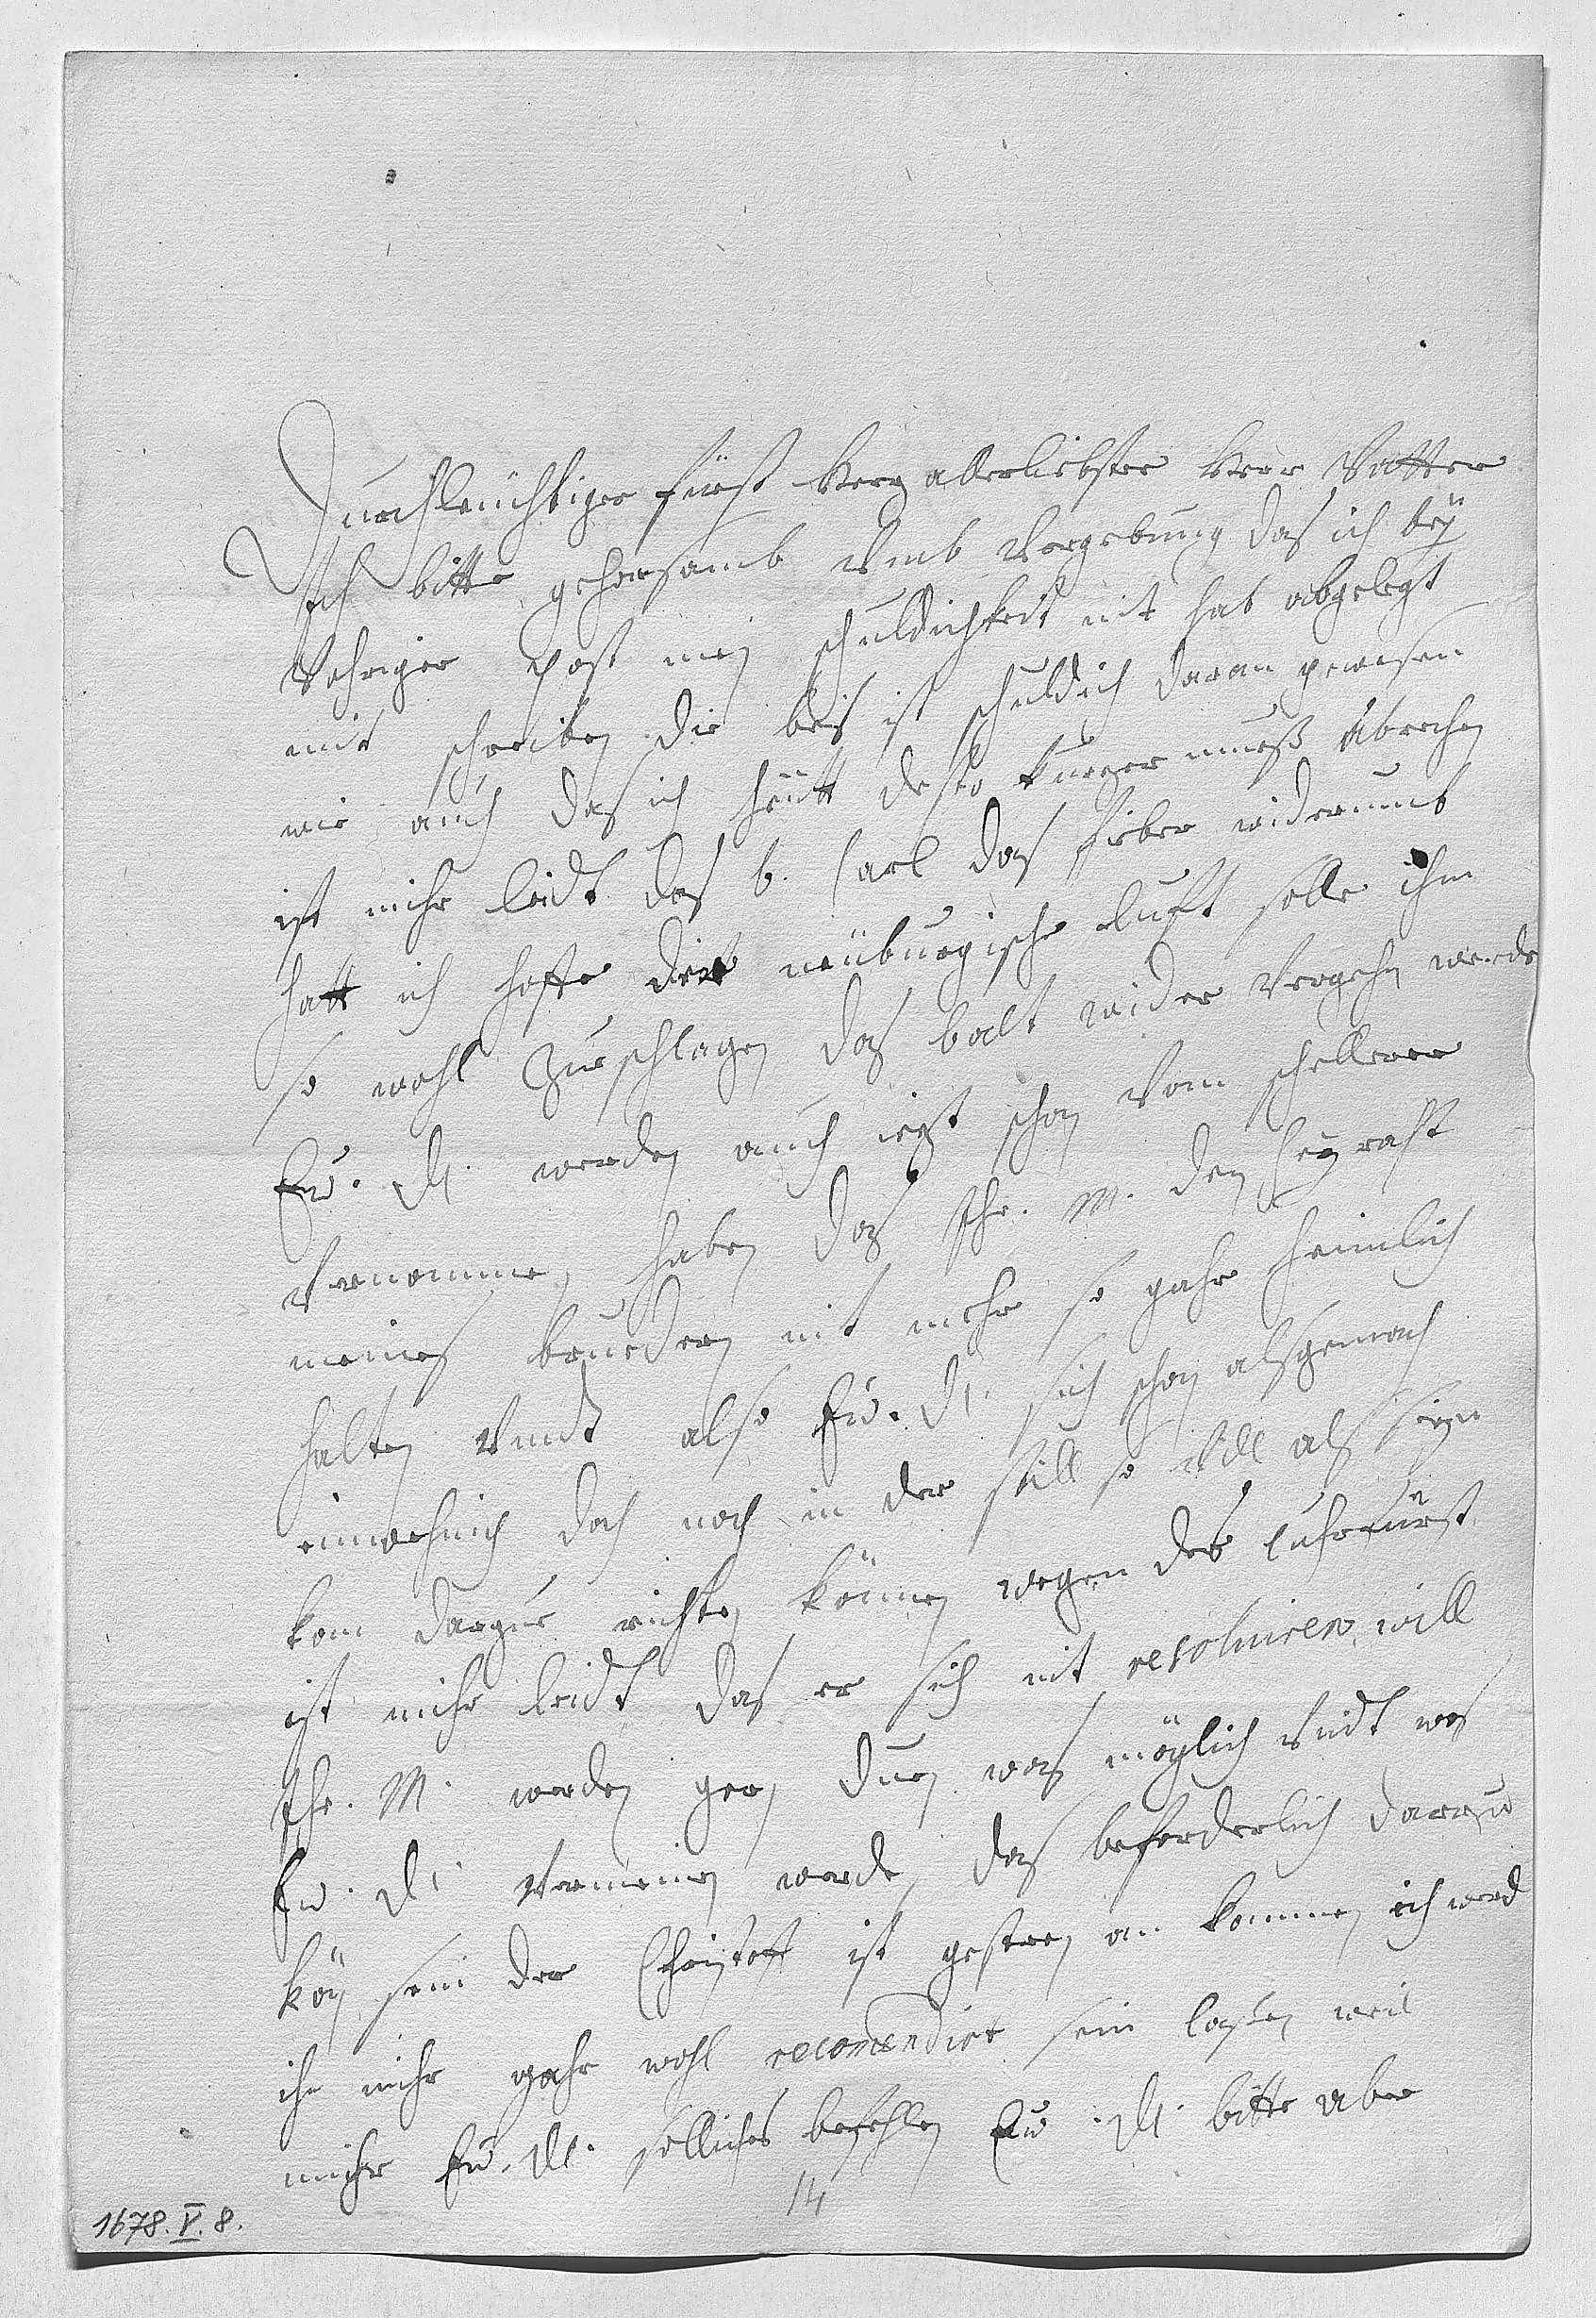 Durchleüchtiger fürst herz allerliebster herr Vatter
Ich bitte gehorsamb umb vergebung das ich beÿ
vohriger post mein schuldichkeit nit hab abgelegt
mit schreiben die beis ist schuldich daran gewesen
wie auch das ich heütt desto kurzer mueß abrechen
ist mihr leidt das b. Carl das fieber widerumb
hatt ich hoffe die neüburgische luft solle ihm
so wohl zuschlagen das balt wider vergehen werde
Eu. Dl. werden auch iezt schon vom schellerer
vernommen haben das Ihr. M. den heyraht
meines brueders nit mehr so gahr heimlich
halten undt also Eu. Dl. sich schon alsgemach
doch noch in der still so vill als sein
kan darzue richten können wegen des Cuhrfürst
ist mihr leidt das er sich nit resolviren will
Ihr. M. werden gern duen was möglich undt was
Eu. Dl. vermeinen werde das beforderlich darzu
kön sein der Christoff ist gestern an kommen ich werd
ihn mihr gahr wohl recomendirt sein lassen weil
mihr Eu. Dl. solliches befehlen Eu. Dl. bitte aber
14
1678. V. 8.